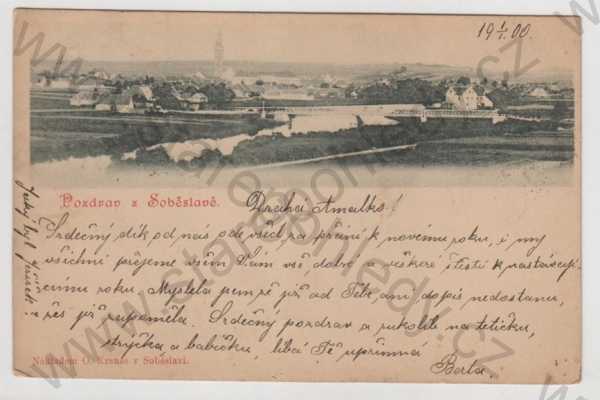 19 1/1 00
Pozdrav z Soběslavě.
Drahá Amalko!
Srdečný dík od nás ode všech za přání k novému roku, i my
všichni přejeme vším Vám vše dobré a veškeré štěstí k nastávají-
címu roku. Myslela jsem že již od Tebe ani dopis nedostanu,
že's již zapoměla. Srdečný pozdrav a rukolib na tetičku,
strýčka a babičku, líbá Tě upřímná
Berta.
Nákladem O. Krause v Soběslavi.